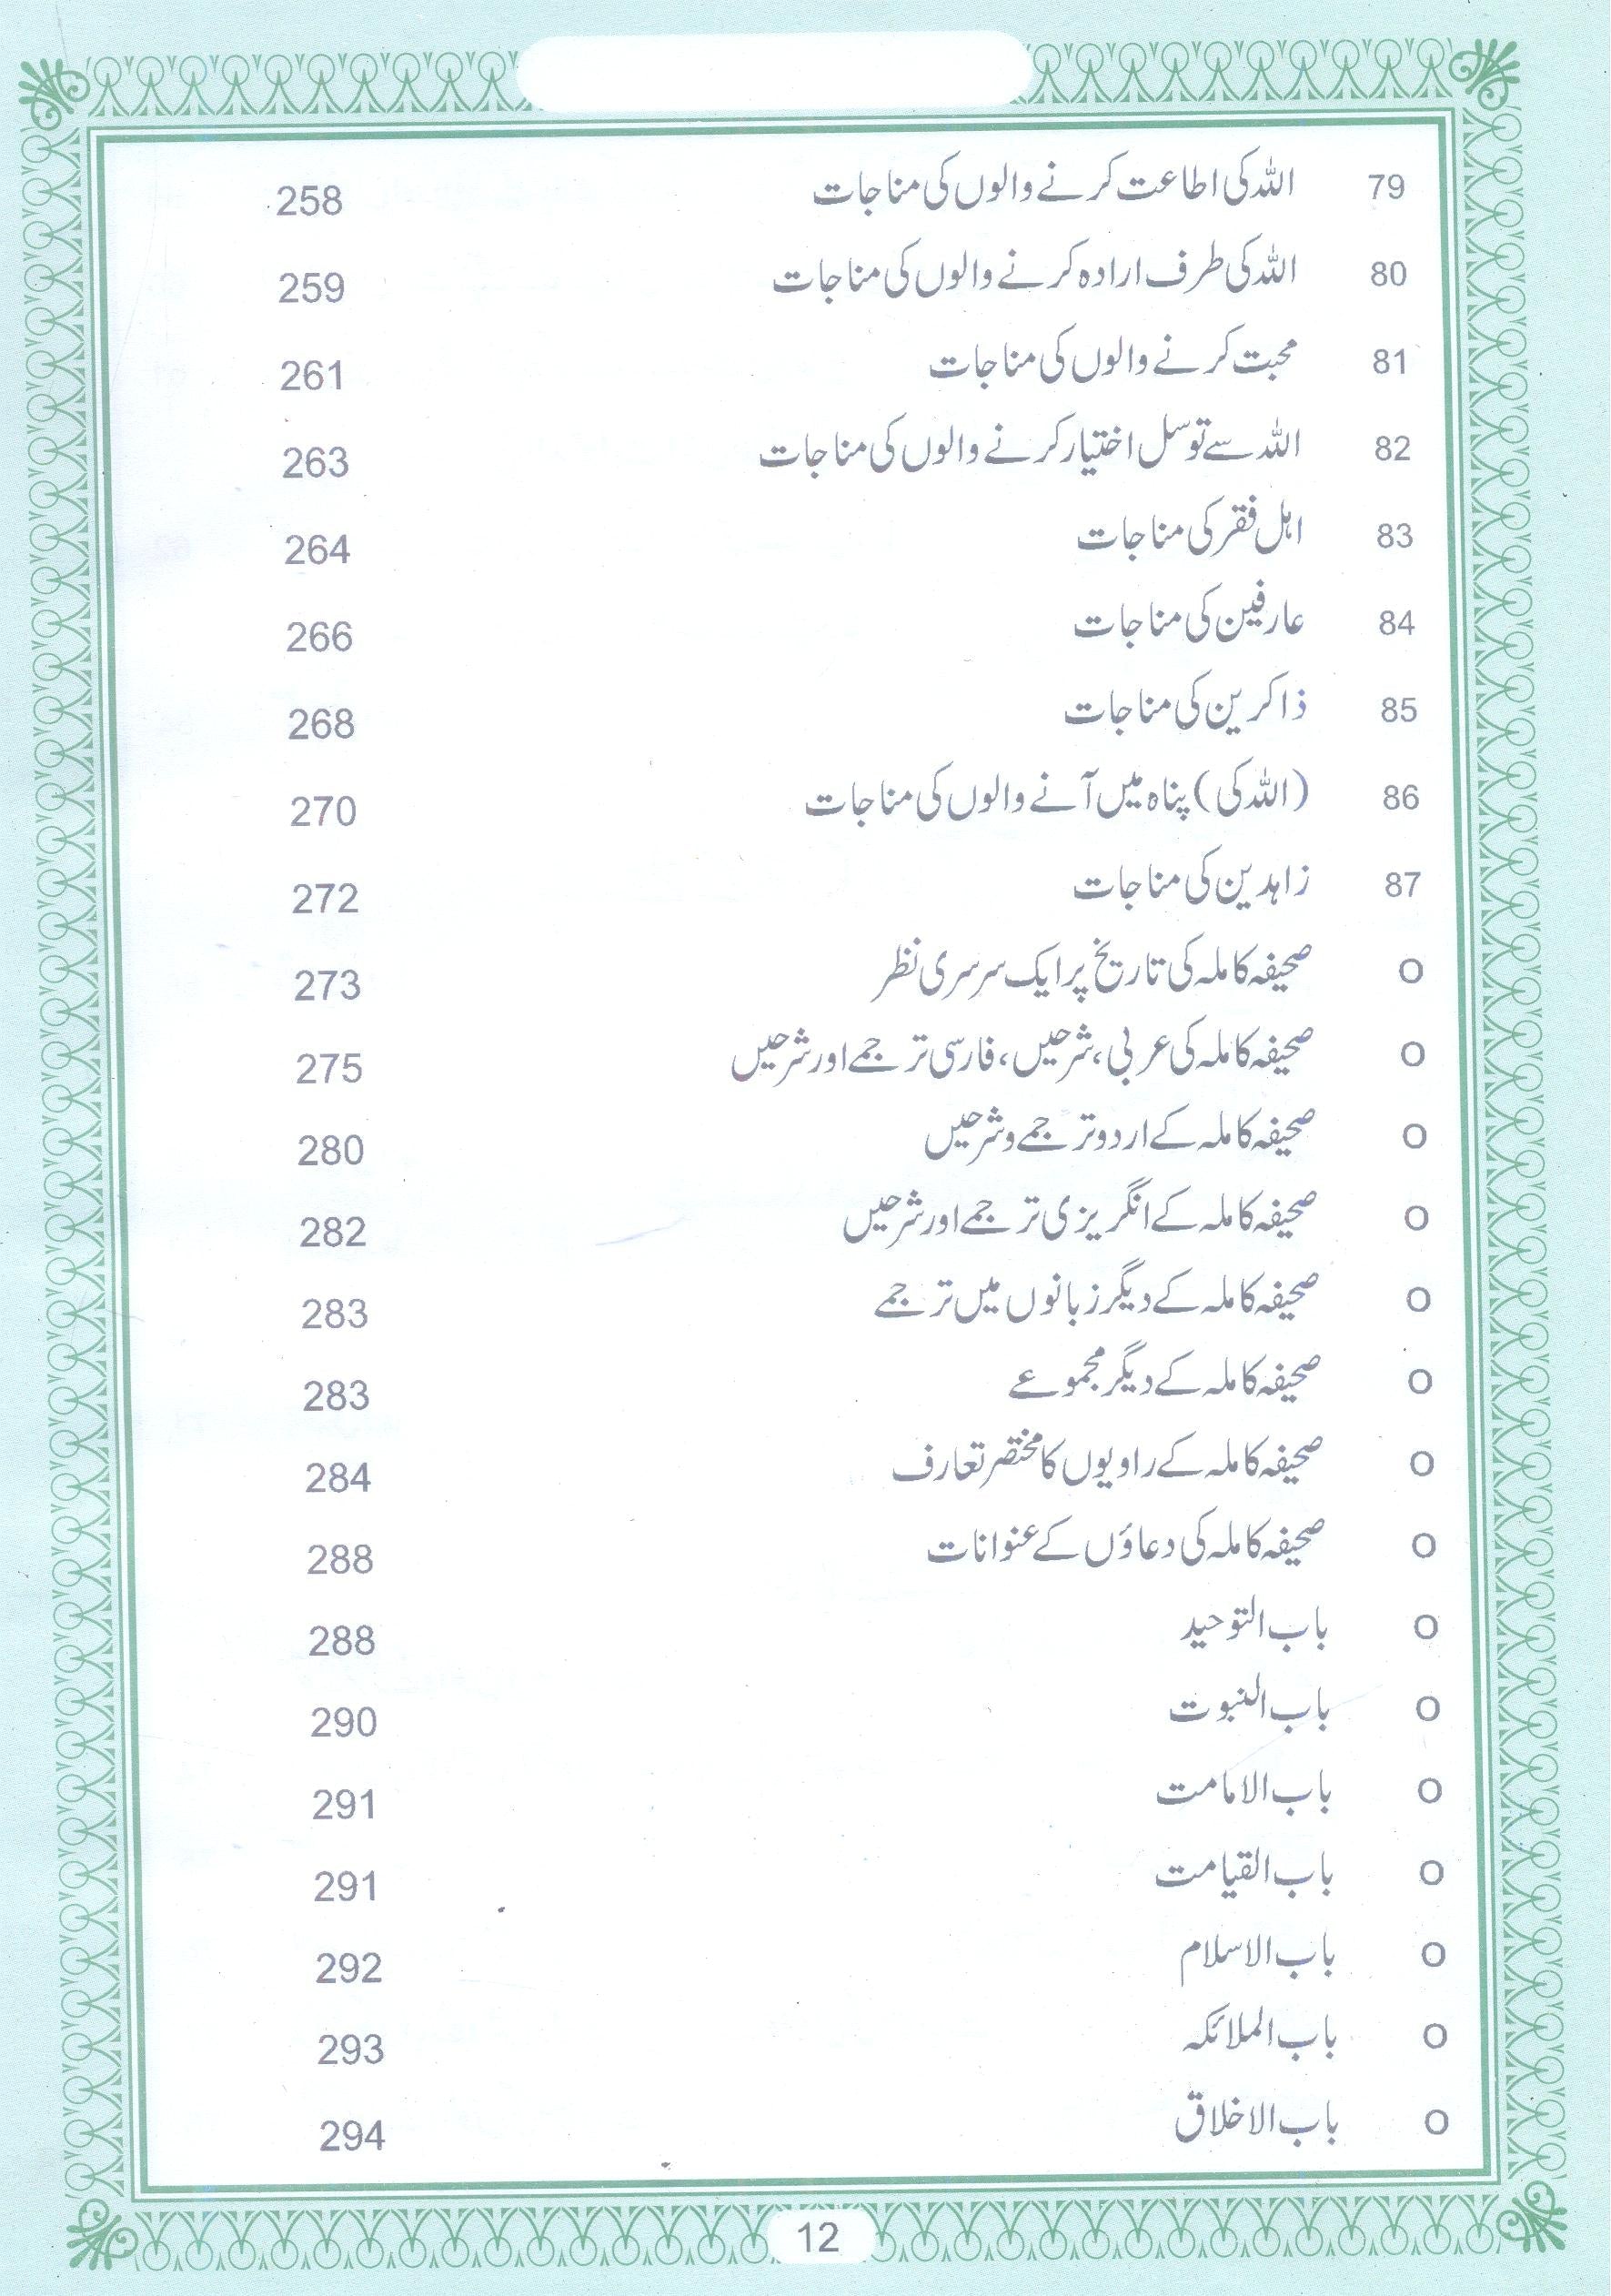 79 اللہ کی اطاعت کرنے والوں کی مناجات 258
80 اللہ کی طرف ارادہ کرنے والوں کی مناجات 259
81 محبت کرنے والوں کی مناجات 261
82 اللہ سے توسل اختیار کرنے والوں کی مناجات 263
83 اہل فقر کی مناجات 264
84 عارفین کی مناجات 266
85 ذاکرین کی مناجات 268
86 (اللہ کی) پناہ میں آنے والوں کی مناجات 270
87 زاہدین کی مناجات 272
o صحیفہ کاملہ کی تاریخ پر ایک سرسری نظر 273
o صحیفہ کاملہ کی عربی، شرحیں، فارسی ترجمے اور شرحیں 275
o صحیفہ کاملہ کے اردو ترجمے و شرحیں 280
o صحیفہ کاملہ کے انگریزی ترجمے اور شرحیں 282
o صحیفہ کاملہ کے دیگر زبانوں میں ترجمے 283
o صحیفہ کاملہ کے دیگر مجموعے 283
o صحیفہ کاملہ کے راویوں کا مختصر تعارف 284
o صحیفہ کاملہ کی دعاؤں کے عنوانات 288
o باب التوحید 288
o باب النبوت 290
o باب الامامت 291
o باب القیامت 291
o باب الاسلام 292
o باب الملائکہ 293
o باب الاخلاق 294
12